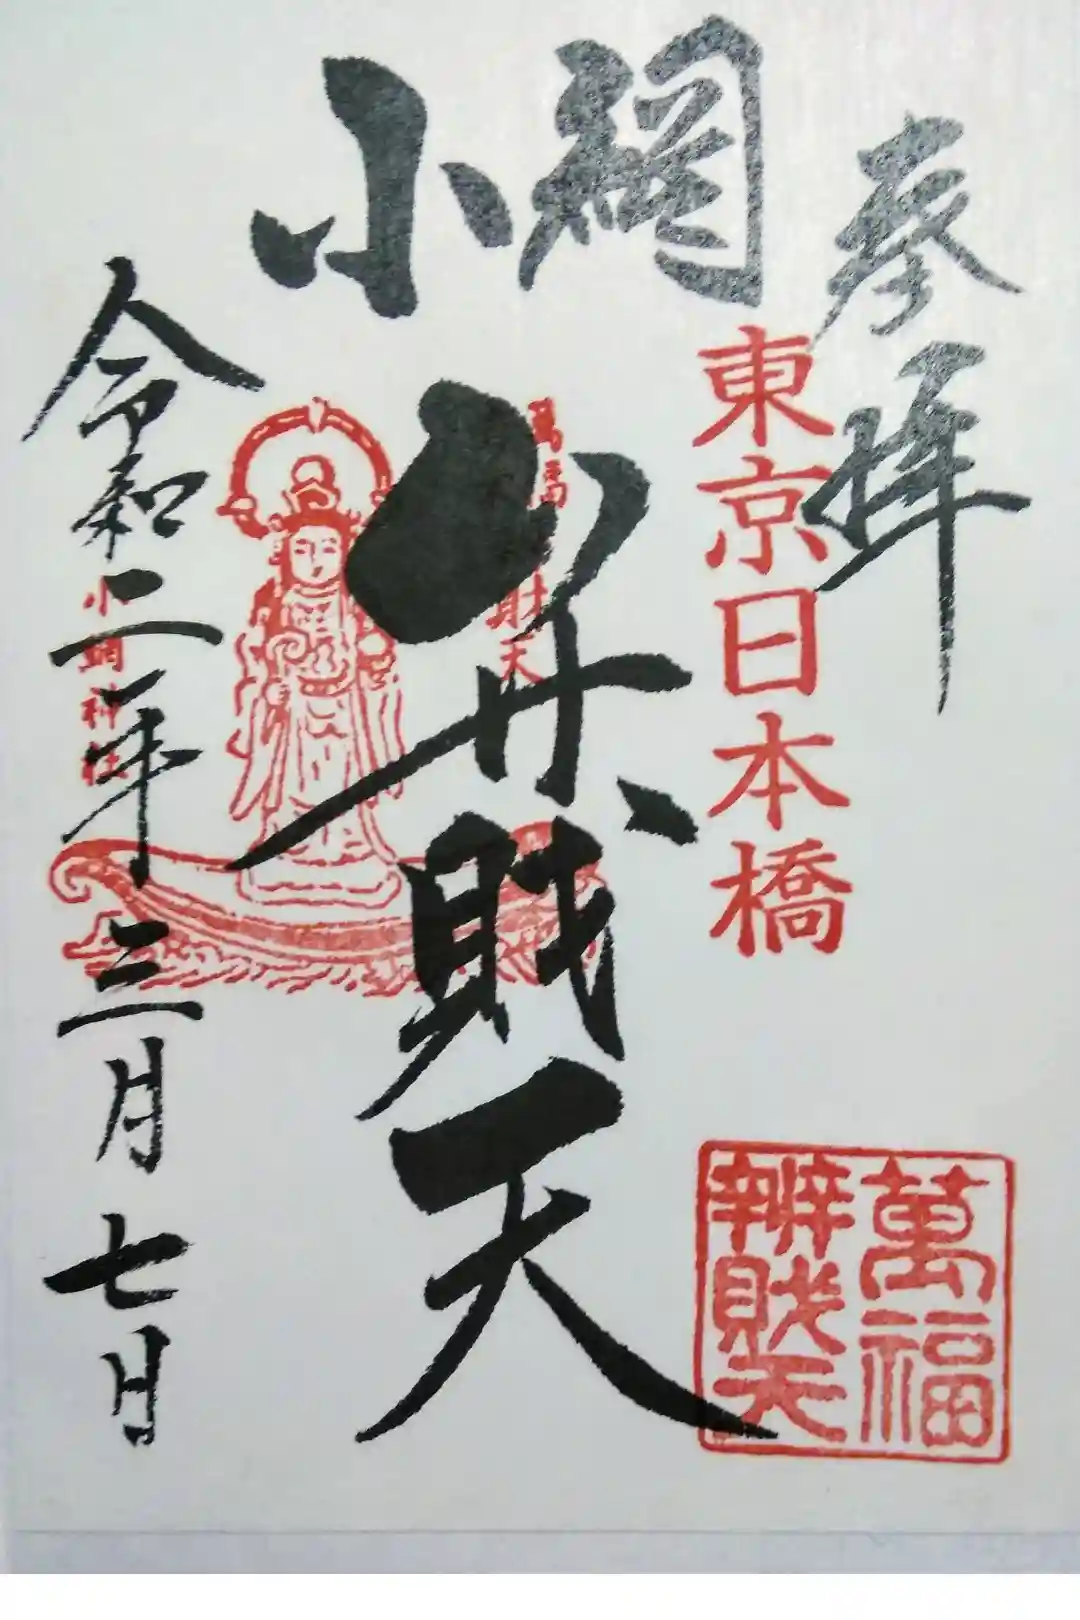 奉拝
東京日本橋
小網
弁財天
萬福
財天
小網神社
令和二年三月七日
萬福
辨財天